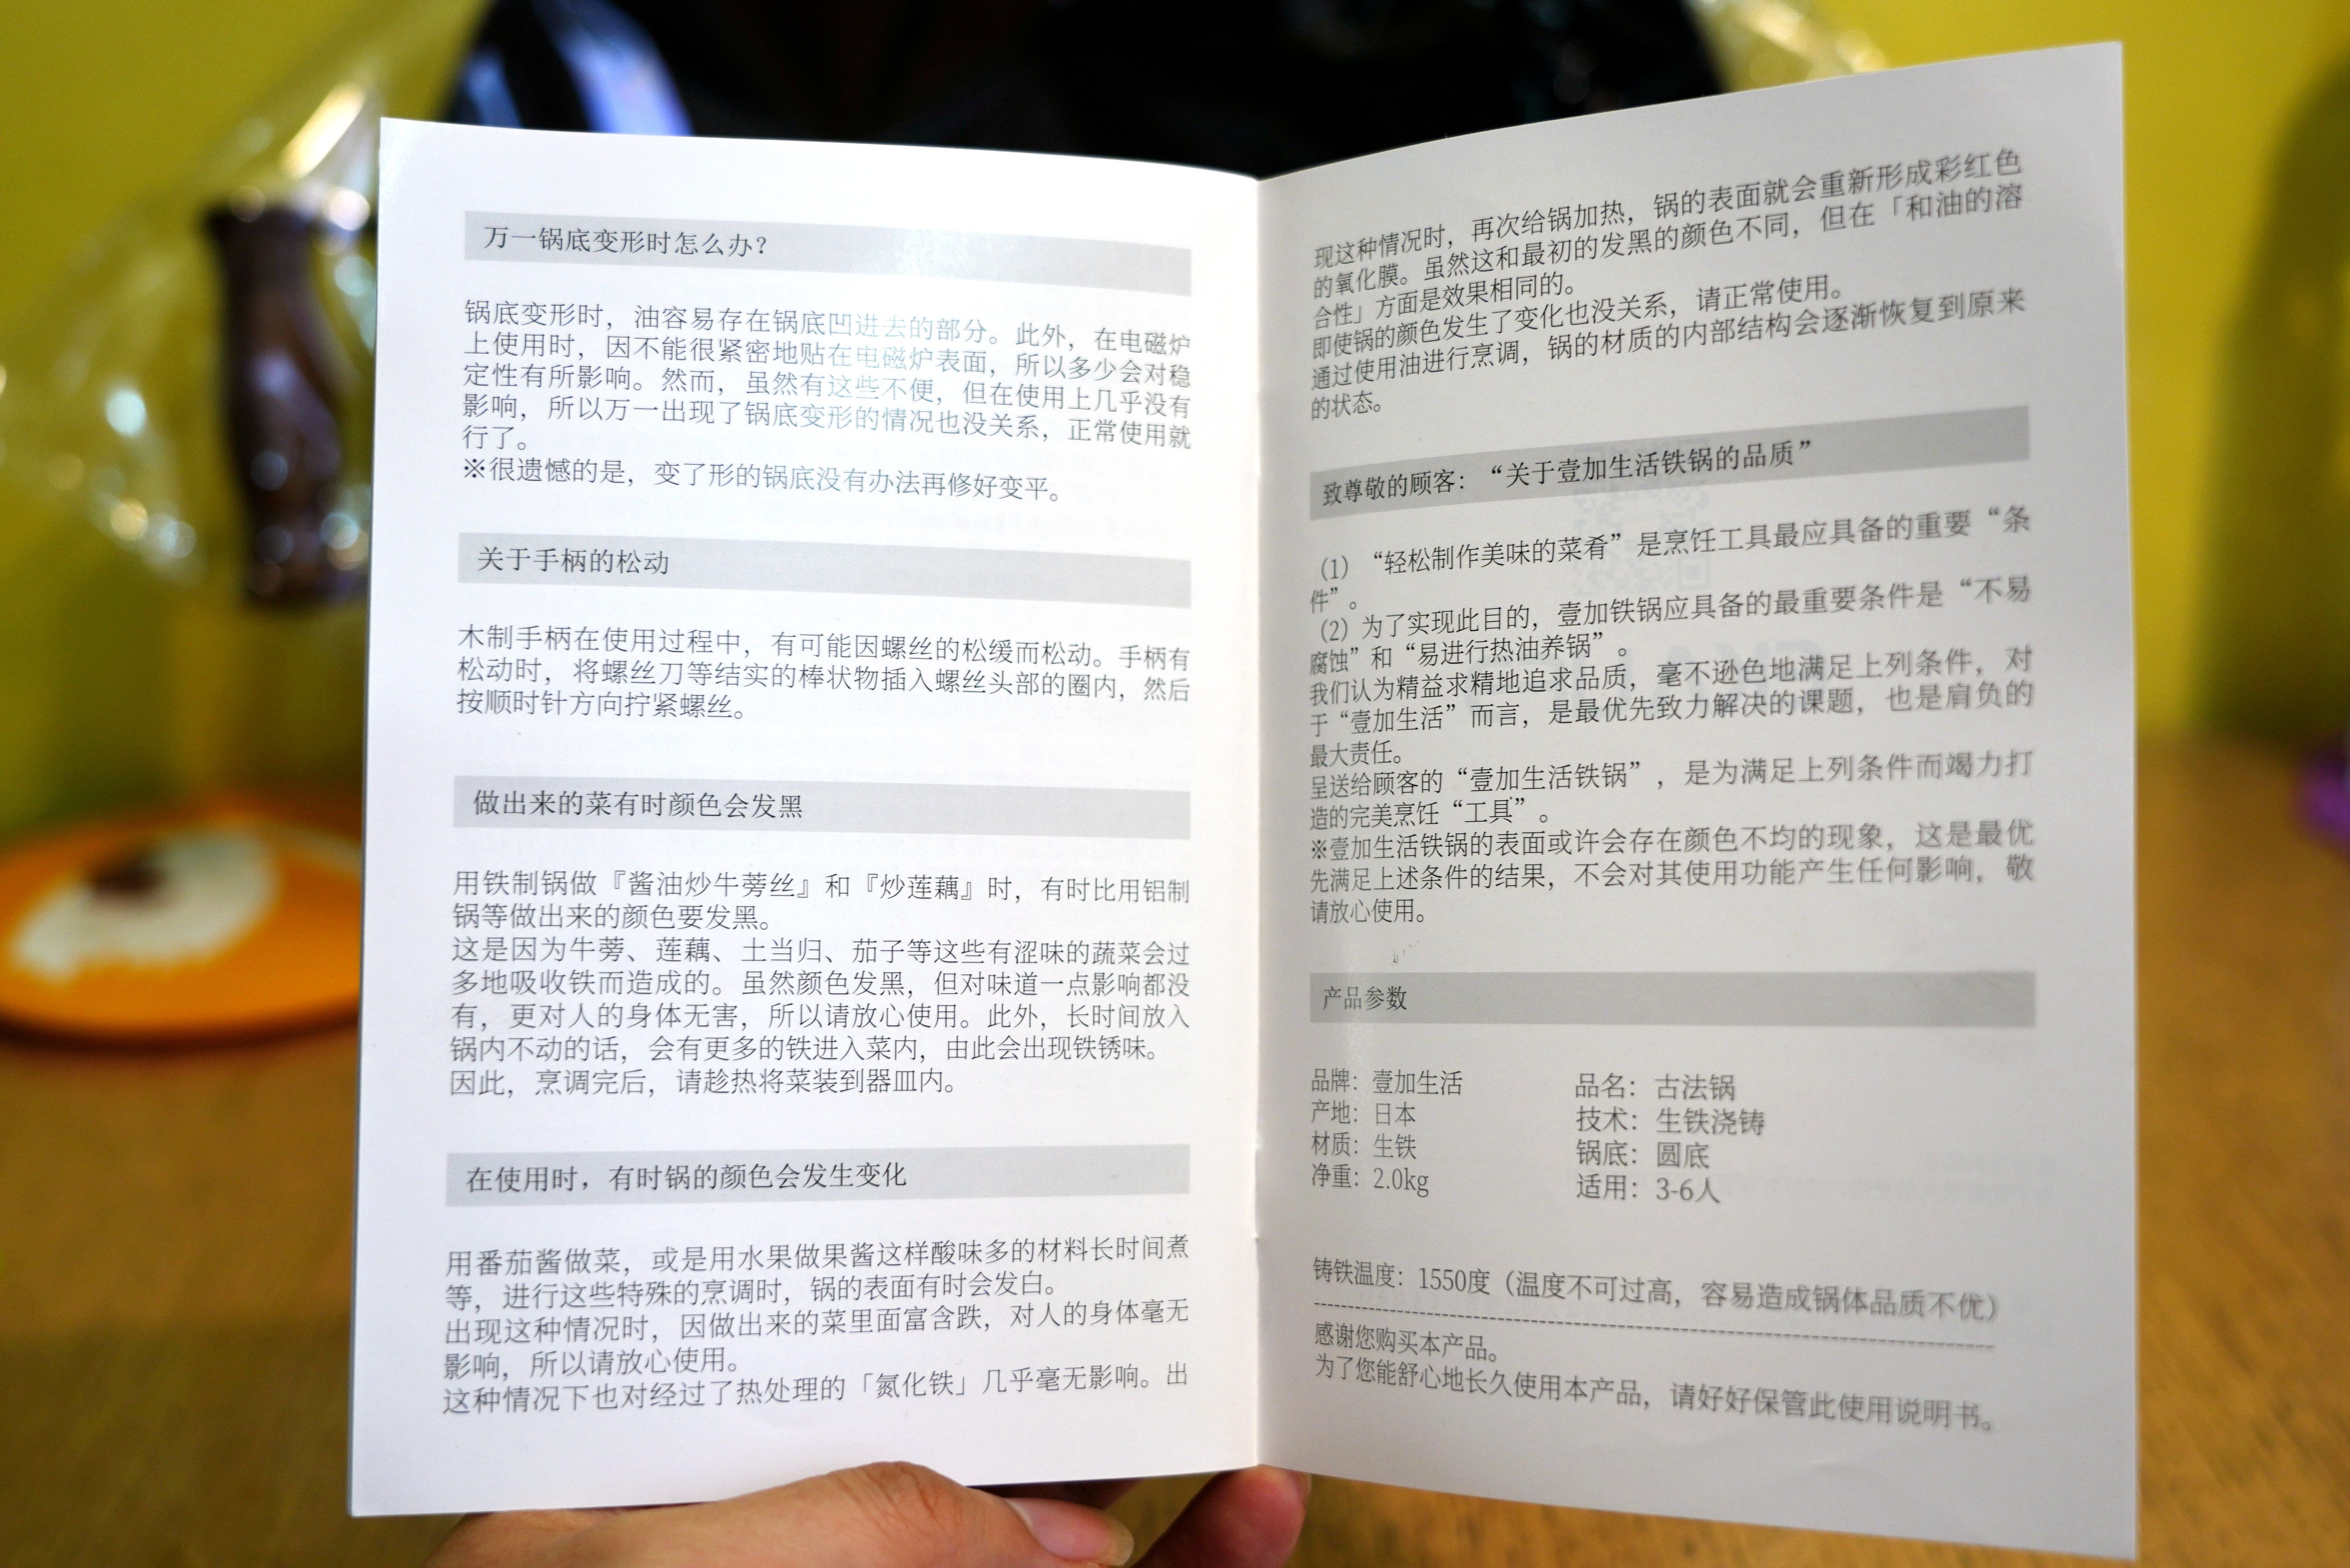 万一锅底变形时怎么办？
锅底变形时，油容易存在锅底凹进去的部分。此外，在电磁炉
上使用时，因不能很紧密地贴在电磁炉表面，所以多少会对稳
定性有所影响。然而，虽然有这些不便，但在使用上几乎没有
影响，所以万一出现了锅底变形的情况也没关系，正常使用就
行了。
※很遗憾的是，变了形的锅底没有办法再修好变平。
关于手柄的松动
木制手柄在使用过程中，有可能因螺丝的松缓而松动。手柄有
松动时，将螺丝刀等结实的棒状物插入螺丝头部的圈内，然后
按顺时针方向拧紧螺丝。
做出来的菜有时颜色会发黑
用铁制锅做『酱油炒牛蒡丝』和『炒莲藕』时，有时比用铝制
锅等做出来的颜色要发黑。
这是因为牛蒡、莲藕、土当归、茄子等这些有涩味的蔬菜会过
多地吸收铁而造成的。虽然颜色发黑，但对味道一点影响都没
有，更对人的身体无害，所以请放心使用。此外，长时间放入
锅内不动的话，会有更多的铁进入菜内，由此会出现铁锈味。
因此，烹调完后，请趁热将菜装到器皿内。
在使用时，有时锅的颜色会发生变化
用番茄酱做菜，或是用水果做果酱这样酸味多的材料长时间煮
等，进行这些特殊的烹调时，锅的表面有时会发白。
出现这种情况时，因做出来的菜里面富含跌，对人的身体毫无
影响，所以请放心使用。
这种情况下也对经过了热处理的「氮化铁」几乎毫无影响。出
现这种情况时，再次给锅加热，锅的表面就会重新形成彩红色
的氧化膜。虽然这和最初的发黑的颜色不同，但在「和油的溶
合性」方面是效果相同的。
即使锅的颜色发生了变化也没关系，请正常使用。
通过使用油进行烹调，锅的材质的内部结构会逐渐恢复到原来
的状态。
致尊敬的顾客：“关于壹加生活铁锅的品质”
（1）“轻松制作美味的菜肴”是烹饪工具最应具备的重要“条
件”。
（2）为了实现此目的，壹加铁锅应具备的最重要条件是“不易
腐蚀”和“易进行热油养锅”。
我们认为精益求精地追求品质，毫不逊色地满足上列条件，对
于“壹加生活”而言，是最优先致力解决的课题，也是肩负的
最大责任。
呈送给顾客的“壹加生活铁锅”，是为满足上列条件而竭力打
造的完美烹饪“工具”。
※壹加生活铁锅的表面或许会存在颜色不均的现象，这是最优
先满足上述条件的结果，不会对其使用功能产生任何影响，敬
请放心使用。
产品参数
品牌：壹加生活 品名：古法锅
产地：日本 技术：生铁浇铸
材质：生铁 锅底：圆底
净重：2.0kg 适用：3-6人
铸铁温度：1550度（温度不可过高，容易造成锅体品质不优）
感谢您购买本产品。
为了您能舒心地长久使用本产品，请好好保管此使用说明书。